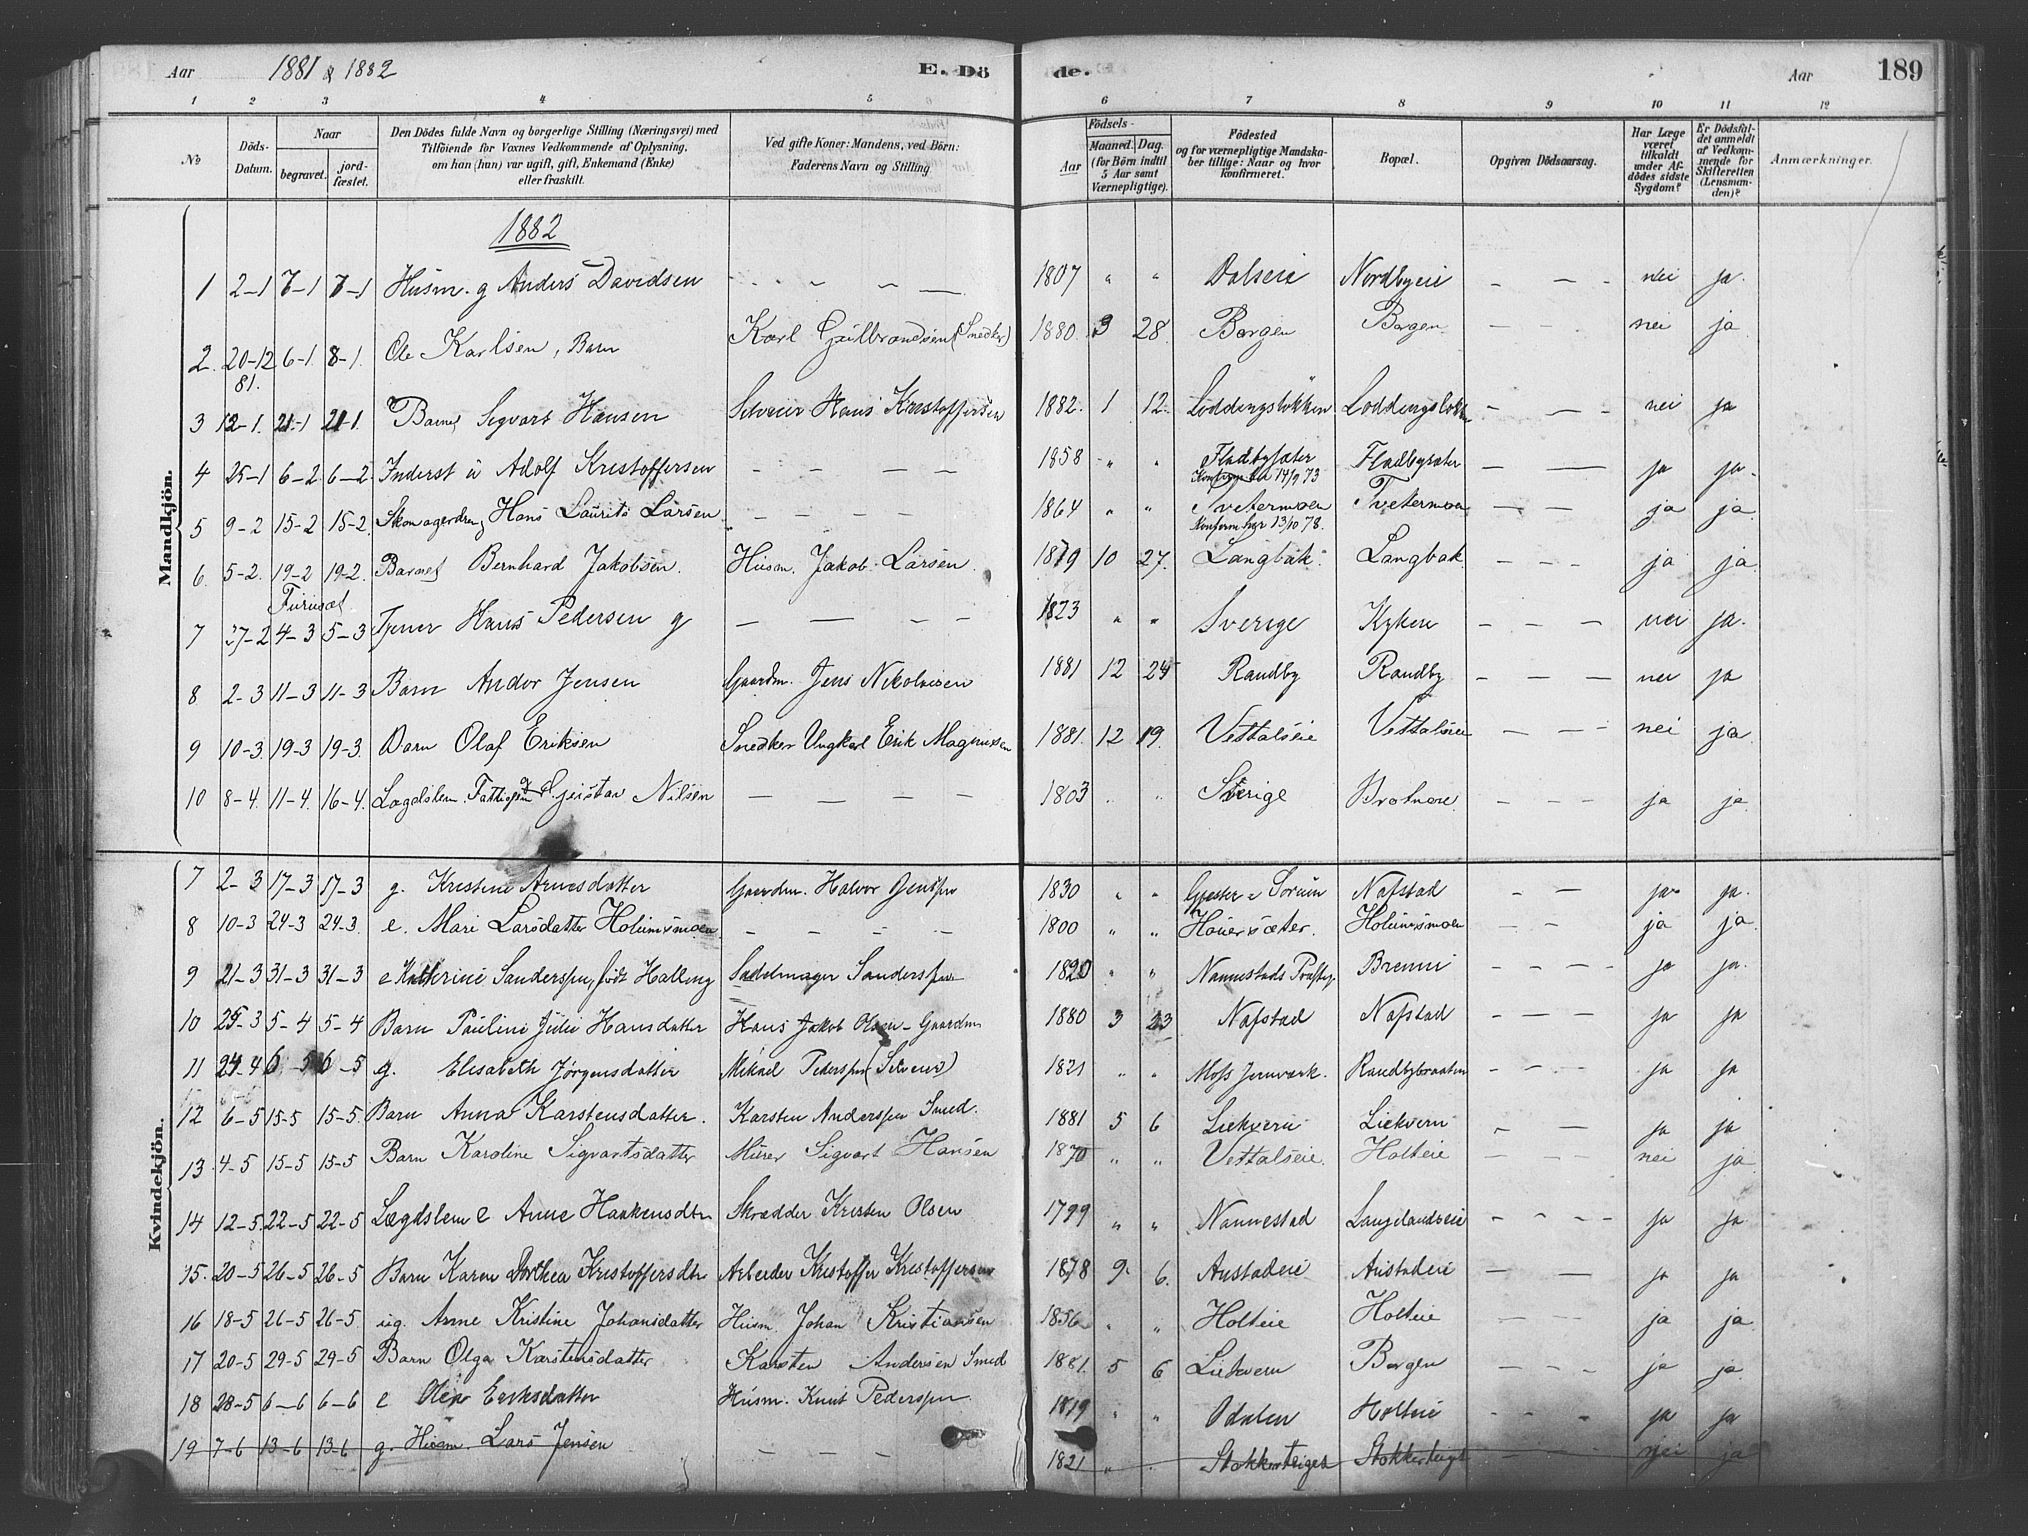 Aar 1881 & 1882 E. Dö de. Aar 189
1 2 3 4 5 6 7 8 9 10 11 12
No
Döds-Datum.
Naar
begravet.
jord-fæstet.
Den Dödes fulde Navn og borgerlige Stilling (Næringsvei) med
Tilföiende for Voxnes Vedkommende af Oplysning,
om han (hun) var ugift, gift, Enkemand (Enke)
eller fraskilt.
Ved gifte Koner: Mandens, ved Börn:
Faderens Navn og Stilling
Födsels-
Aar
Maaned. Dag.
(for Börn indtil
5 Aar samt
Værnepligtige).
Födested
og for værnepligtige Mandska-
ber tillige: Naar og hvor
konfirmeret.
Bopæl.
Opgiven Dödsaarsag.
Har Læge
været
tilkaldt
under Af-
dödes sidste
Sygdom?
Er Dödsfal-
det anmeldt
af Vedkom-
mende for
Skifteretten
(Lensman-
den)?
Anmærkninger.
Mandkjön.
1882
1 2-1 7-1 7-1 Husm. g Anders Davidsen - - - - 1807 " " Dalseie Nordbyeie - - - nei ja.
2. 20-12 81. 6-1 8-1. Ole Karlsen, Barn Karl Gulbrandsen (Snedker) 1880. 3 28. Borgen Borgen - - - nei ja
3 12-1. 21-1 21-1. Barnet Sigvart Hansen Selveier Hans Kristoffersen 1882. 1 12. Loddingsløkken Loddingsløkken - - - nei ja
4 25-1 6-2 6-2 Inderst u Adolf Kristoffersen - - - - 1858 " " Fladbysæter Fladbysæter - - ja ja.
14/9 73
5 9-2 15-2 15-2. Hans Laurits Larsen - - - - 1864 " " Tvetermoen Tvetermoen - - ja ja.
13/10 78.
6. 5-2. 19-2 19-2. Barnet Bernhard Jakobsen. Husm. Jakob Larsen. 1879 10 27. Langbak. Langbak - - - ja ja
Furuset
7 27-2 4-3 5-3 Hans Pedersen g - - - - 1823 " " Sverige - - - nei ja.
8 2-3 11-3 11-3 Barn Andor Jensen Gaardm. Jens Nikolaisen 1881 12 24 Randby Randby - - - nei ja
9 10-3. 19-3 19-3. Barn Olaf Eriksen Snedker Ungkarl Erik Magnussen 1881. 12 19. Vettalseie Vettalseie - - - nei ja
10 8-4. 11-4. 16-4. Lægdslem. Nilsen - - - - 1803 " " Sverige - - - ja ja.
Kvindekjön.
7 2-3 17-3 17-3 g. Kristine Arnesdatter Gaardm. Halvor Jenssen 1830 " " Nafstad - - ja ja.
8 10-3 24-3 24-3. e. Mari Larsdatter Holumsmoen. - - - - 1800 " " Holumsmoen - - ja ja.
9 21-3 31-3 31-3 e Kathrine Sanderssen, født Halling Sadelmager Sanderssen 1820 " " Nannestads Brenni - - - - ja ja.
10 25-3 5-4 5-4 Barn Pauline Julie Hansdatter Hans Jakob Olsen - Gaardm 1880 3 23 Nafstad Nafstad - - - ja ja
11 24-4 6-5 6-5 g. Elisabeth Jørgensdatter Mikael Pederssen (Selveier) 1821 " " Moss Jernværk. Randbybraaten - - - ja ja
12 6-5 15-5 15-5. Barn Anna Karstensdatter. Karsten Anderssen Smed. 1881 5 6 Liekvern Liekvern - - ja ja
13. 4-5 15-5 15-5 Barn Karoline Sigvartsdatter Murer Sigvart Hansen 1870 " " Vettalseie. Holteie - - - nei ja
14 12-5 22-5 22-5 Lægdslem e Anne Haakensdtr Skrædder Kristen Olsen 1799 " " Nannestad Langelandseie - - - - ja ja
15. 20-5 26-5 26-5 Barn Karen Dorthea Kristoffersdtr Arbeider Kristoffer Kristoffersen 1878 9. 6. Austadeie Austadeie - - ja ja
16 18-5 26-5 26-5. ug. Anne Kristine Johansdatter Husm. Johan Kristiansen 1856 " " Holteie Holteie ja ja
17 20-5 29-5 29-5 Barn Olga Karstensdatter Karsten Andersen Smed 1881. 5 6 Liekvern Borgen - - - ja ja.
18 28-5 6-6 6-6 e Olea Eriksdatter Husm. Knut Pederssen 1819 " " Odalen Holteie - - - ja ja
19 7-6 13-6 13-6 g. Husm. Lars Jensen - - - 1821 " " Stokkerteiget Stokkerteiget - nei ja